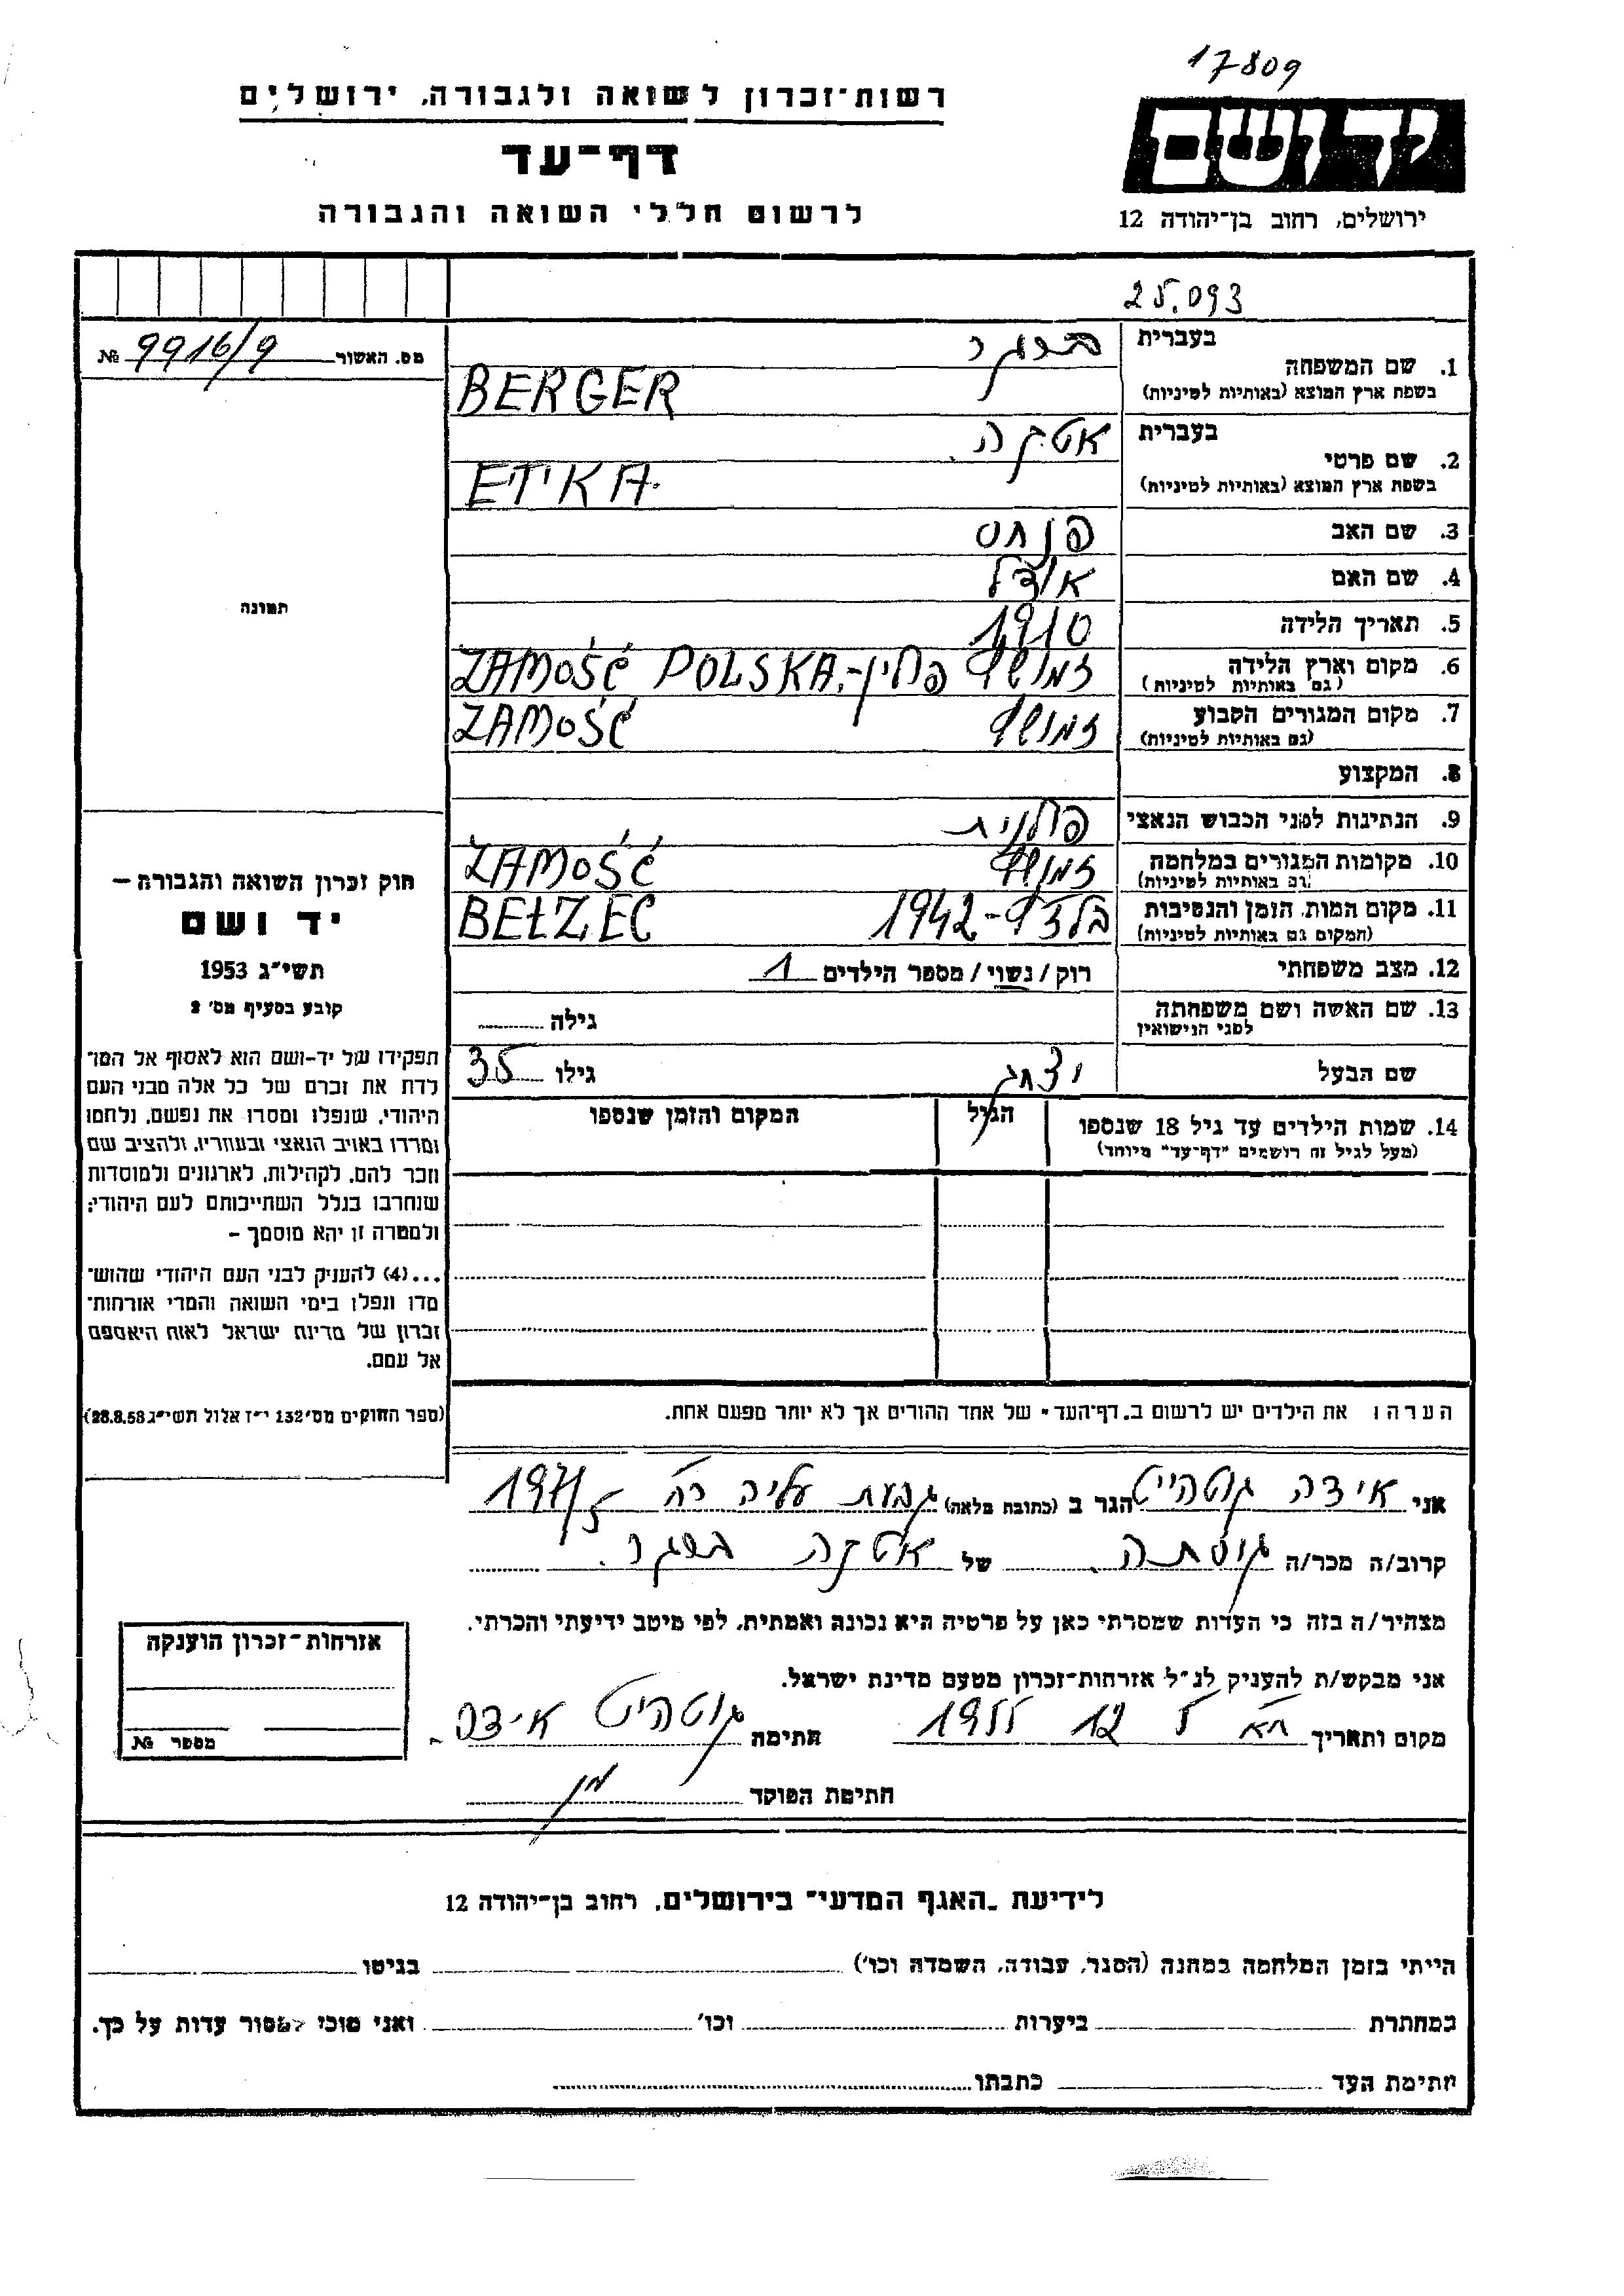 17809
רשות־זכרון לשואה ולגבורה, ירושלים
יד ושם
דף־עד
לרשום חללי השואה והגבורה
ירושלים, רחוב בן־יהודה 12
25.093
מס. האשור № 9916/9
בעברית
1. שם המשפחה ברגר
בשפת ארץ המוצא (באותיות לטיניות) BERGER
בעברית
2. שם פרטי אטקה
בשפת ארץ המוצא (באותיות לטיניות) ETKA
3. שם האב פנחס
4. שם האם אידל
5. תאריך הלידה 1910
6. מקום וארץ הלידה זמושץ פולין-. ZAMOŚĆ POLSKA
(גם באותיות לטיניות)
7. מקום המגורים הקבוע זמושץ ZAMOŚĆ
(גם באותיות לטיניות)
8. המקצוע
9. הנתינות לפני הכבוש הנאצי פולנית
10. מקומות המגורים במלחמה זמושץ ZAMOŚĆ
(גם באותיות לטיניות)
11. מקום המות, הזמן והנסיבות בלזץ - 1942 BEŁZEC
(המקום גם באותיות לטיניות)
12. מצב משפחתי רוק / נשוי / מספר הילדים 1
13. שם האשה ושם משפחתה גילה
לפני הנישואין
שם הבעל יצחק גילו 35
14. שמות הילדים עד גיל 18 שנספו הגיל המקום והזמן שנספו
(מעל לגיל זה רושמים "דף־עד" מיוחד)
הערה: את הילדים יש לרשום ב„דף־העד" של אחד ההורים אך לא יותר מפעם אחת.
תמונה
חוק זכרון השואה והגבורה —
יד ושם
תשי"ג 1953
קובע בסעיף מס' 2
תפקידו של יד-ושם הוא לאסוף אל המו־
לדת את זכרם של כל אלה מבני העם
היהודי, שנפלו ומסרו את נפשם, נלחמו
ומרדו באויב הנאצי ובעוזריו, ולהציב שם
וזכר להם, לקהילות, לארגונים ולמוסדות
שנחרבו בגלל השתייכותם לעם היהודי;
ולמטרה זו יהא מוסמך –
...(4) להעניק לבני העם היהודי שהוש־
מדו ונפלו בימי השואה והמרי אזרחות־
זכרון של מדינת ישראל לאות היאספם
אל עמם.
(ספר החוקים מס' 132 י"ז אלול תשי"ג 28.8.53)
אני אידה גוטהייט הגר ב (כתובת מלאה) גבעת עליה
קרוב/ה מכר/ה גיסתה של אטקה ברגר.
מצהיר/ה בזה כי העדות שמסרתי כאן על פרטיה היא נכונה ואמתית, לפי מיטב ידיעתי והכרתי.
אני מבקש/ת להעניק לנ"ל אזרחות־זכרון מטעם מדינת ישראל.
מקום ותאריך ת"א 5 12 1955 חתימה גוטהייט אידה
חתימת הפוקד
אזרחות־זכרון הוענקה
מספר №
לידיעת „האגף המדעי" בירושלים, רחוב בן־יהודה 12
הייתי בזמן המלחמה במחנה (הסגר, עבודה, השמדה וכו') בגיטו
במחתרת ביערות וכו' ואני מוכן למסור עדות על כך.
חתימת העד כתבתו